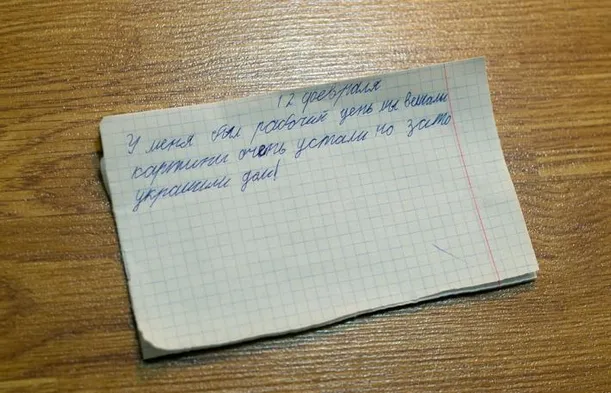 12 февраля
У меня был рабочий день мы вешали
картины очень устали но зато
украшили дом!